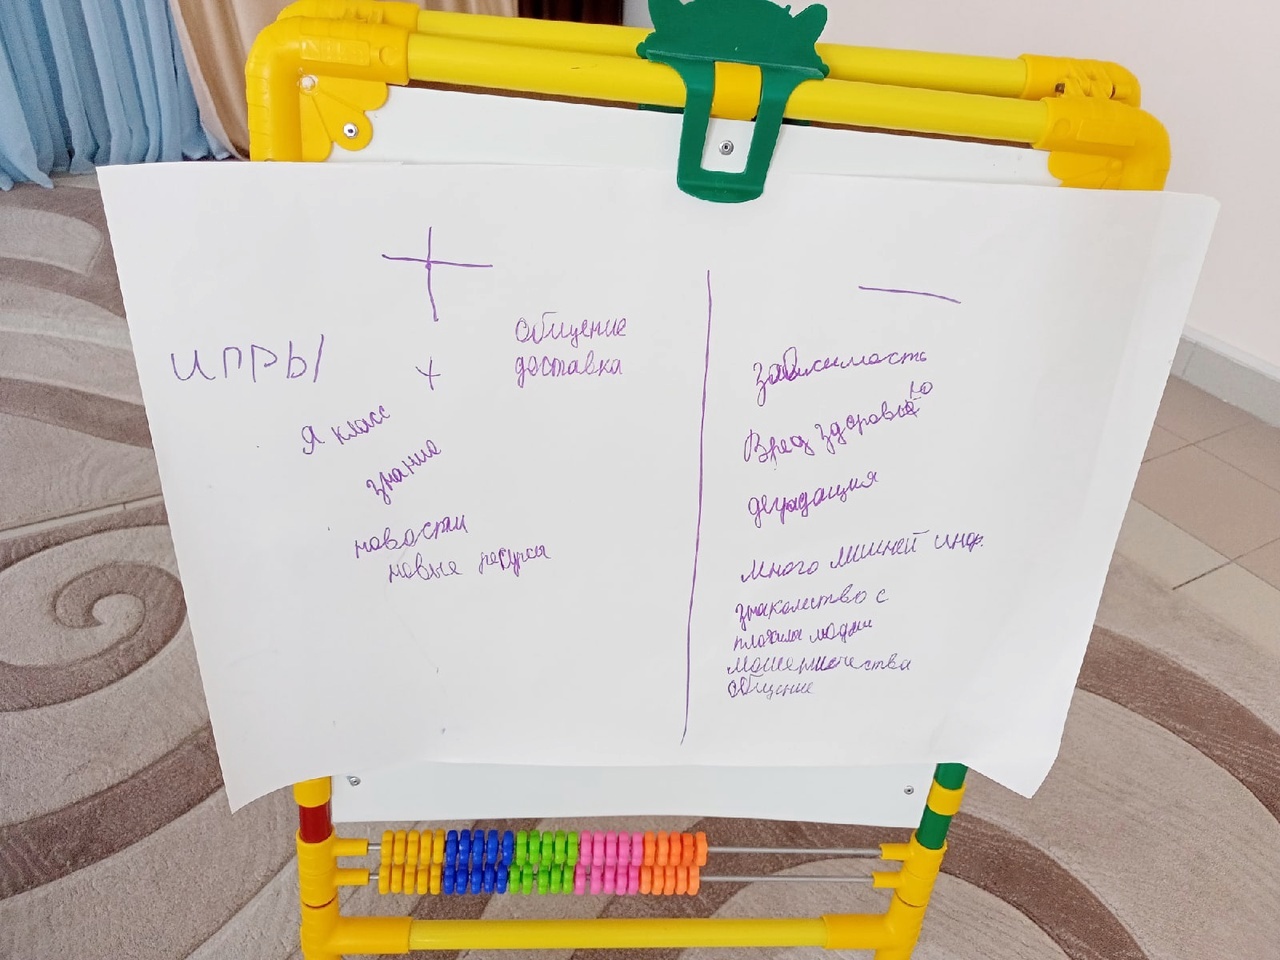 +
—
игры
+
общение
доставка
Я класс
знание
новости
новые ресурсы
зависимость
Вред здоровью
деградация
много лишней инф.
знакомство с
плохими людьми
мошеничества
общение